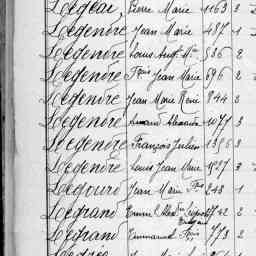 Legeai, Pierre Marie 1163 3
Legendre Jean Marie 487 1
Legendre Louis Aug. Mie 536 2
Legendre Frçois Jean Marie 696 2
Legendre Jean Marie René 844 3
Legendre Armand Alexandre 1071 3
Legendre François Julien 1356 3
Legendre Louis Jean Marie 1527 3
Legouro Jean Marie Frs 248 1
Legrand 742 2
Legrand Emmanuel Frçois 773 2